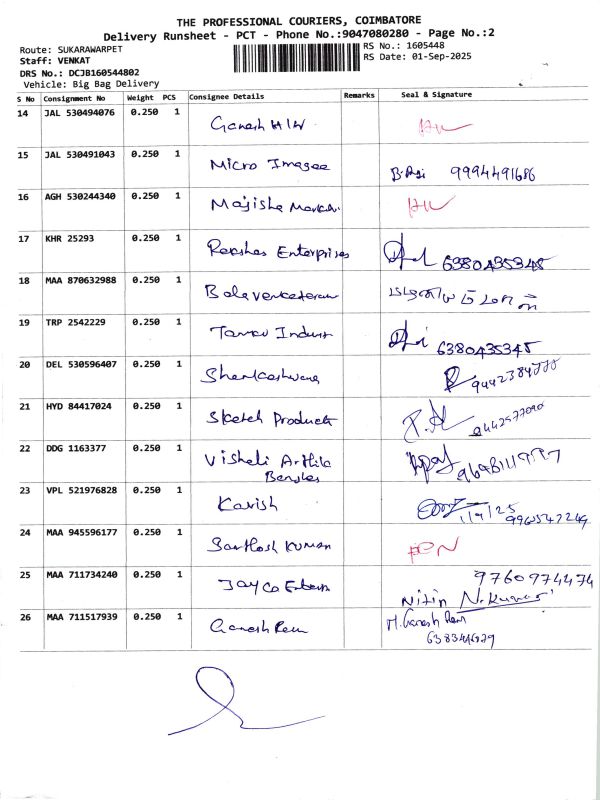 THE PROFESSIONAL COURIERS, COIMBATORE
Delivery Runsheet - PCT - Phone No.:9047080280 - Page No.:2
Route: SUKARAWARPET
RS No.: 1605448
Staff: VENKAT
RS Date: 01-Sep-2025
DRS No.: DCJB160544802
Vehicle: Big Bag Delivery
S No Consignment No Weight PCS Consignee Details Remarks Seal & Signature
14 JAL 530494076 0.250 1 Ganesh
15 JAL 530491043 0.250 1 Micro Imagee 9994491686
16 AGH 530244340 0.250 1 Majisha
17 KHR 25293 0.250 1 Enterprises 6380435345
18 MAA 870632988 0.250 1
19 TRP 2542229 0.250 1 6380435345
20 DEL 530596407 0.250 1
21 HYD 84417024 0.250 1 Sketch Products
22 DDG 1163377 0.250 1 Visheli
23 VPL 521976828 0.250 1 Kavish 1/9/25
24 MAA 945596177 0.250 1 Santhosh Kumar
25 MAA 711734240 0.250 1 Jayco 9760974474
Nitin N.Kumar
26 MAA 711517939 0.250 1 Ganesh Ram M.Ganesh Ram